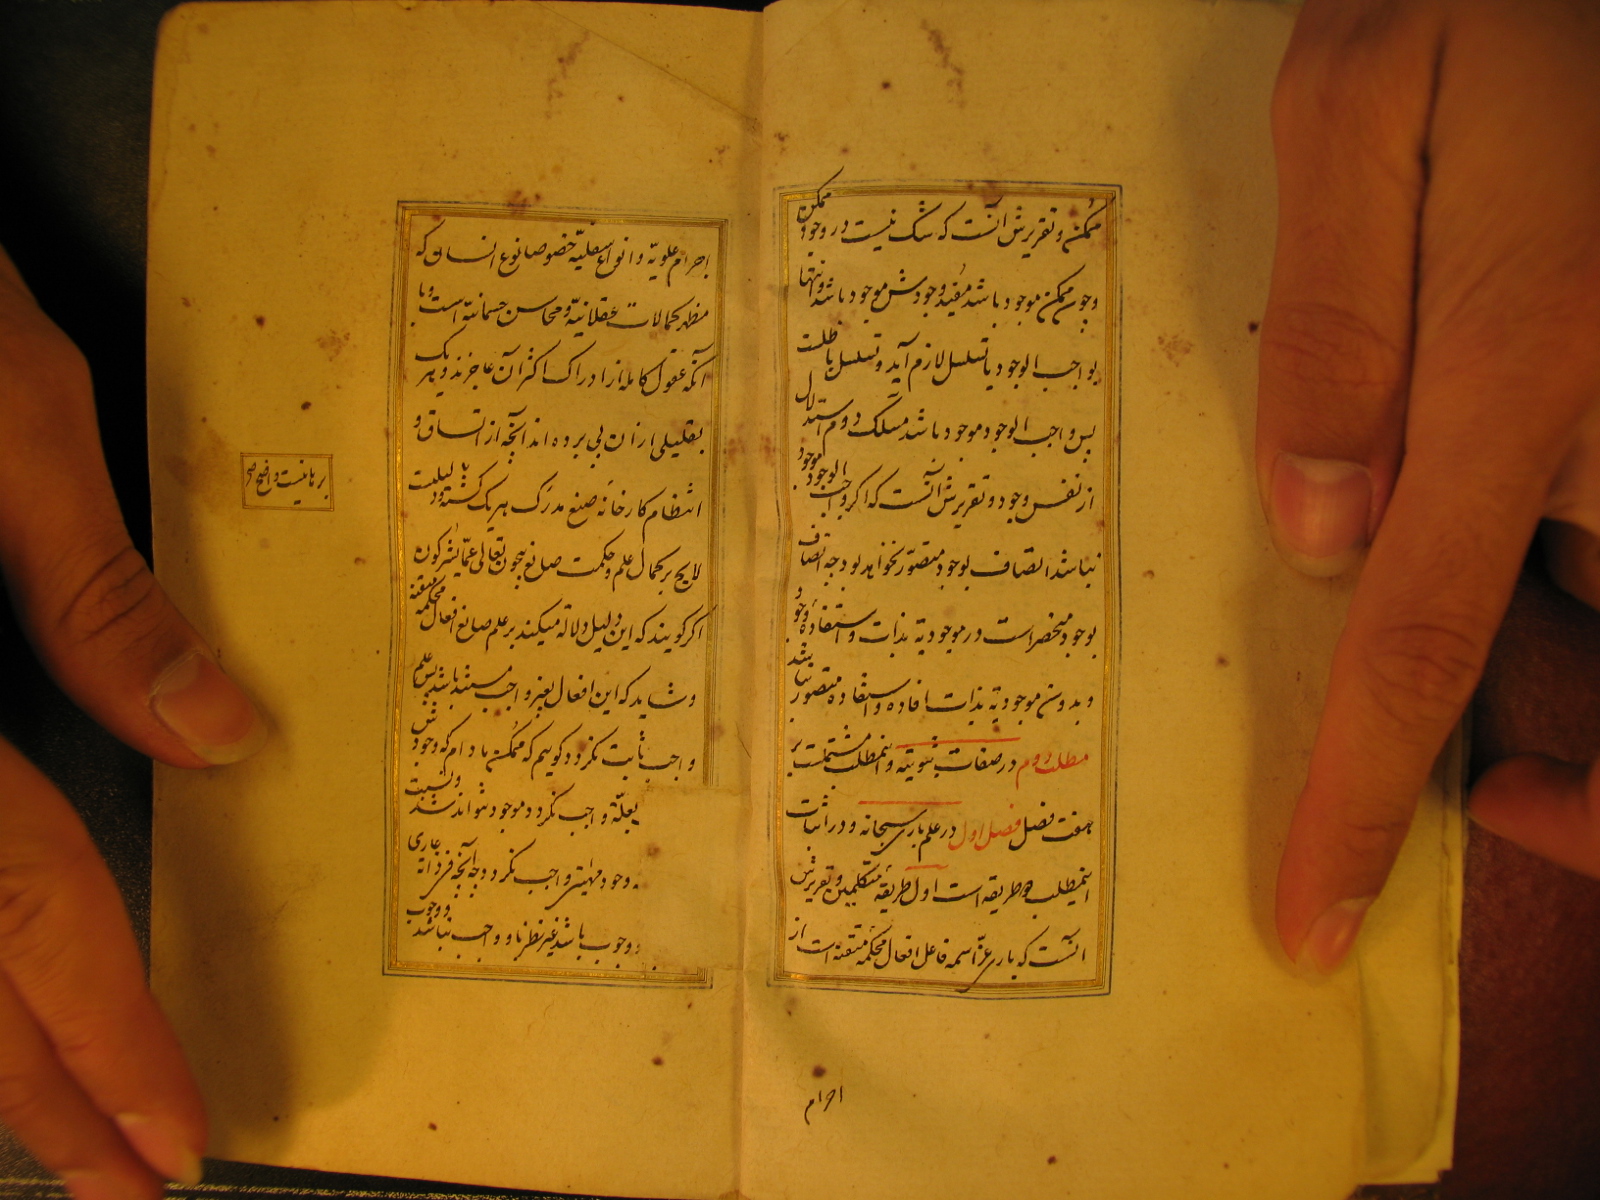 ممکن و تقریرش آنست که شک نیست در وجود ممکن
و چون ممکن موجود باشد مفید وجودش موجود باشد و انتها
بواجب الوجود یا تسلسل لازم آید و تسلسل باطلست
پس واجب الوجود موجود باشد مسلک دوم استدلال
از نفس وجود و تقریرش آنست که اگر واجب الوجود موجود
نباشد اتصاف بوجود متصور نخواهد بود چه اتصاف
بوجود منحصر است در موجودیة بذات و استفاده وجود
و بدون موجودیة بذات افاده و استفاده متصور نباشد
مطلب دوم در صفات ثبوتیه و اینمطلب مشتملست بر
هفت فصل فصل اول در علم باری سبحانه و در اثبات
اینمطلب دو طریقه است اول طریقهٔ متکلمین و تقریرش
آنست که باری عز اسمه فاعل افعال محکمه متقنه است از
اجرام
اجرام علویّه و انواع سفلیّه خصوصا نوع انسان که
مظهر کمالات عقلانیّه و محاسن جسمانیّه است و با
آنکه عقول کامله از ادراک اکثر آن عاجزند و هر یک
بقلیلی از آن پی برده‌اند آنچه از اتساق و
انتظام کارخانه صنع مدرک هر یک گشته دلیلیست
لایح بر کمال علم و حکمت صانع بیچون تعالی عمّا یشرکون
اگر گویند که این دلیل دلالة میکند بر علم صانع افعال محکمه متقنه
و شاید که این افعال بغیر واجب مستند باشد پس علم
واجب ثابت نگردد گوییم که ممکن مادام که وجودش
بعلّة واجب نگردد موجود نتواند شد و نسبت
وجود مهیّتی واجب نگردد چه آنچه فی ذاته عاری
وجوب باشد غیر نظر باو واجب نباشد و وجوب
برهانیست واضح صح